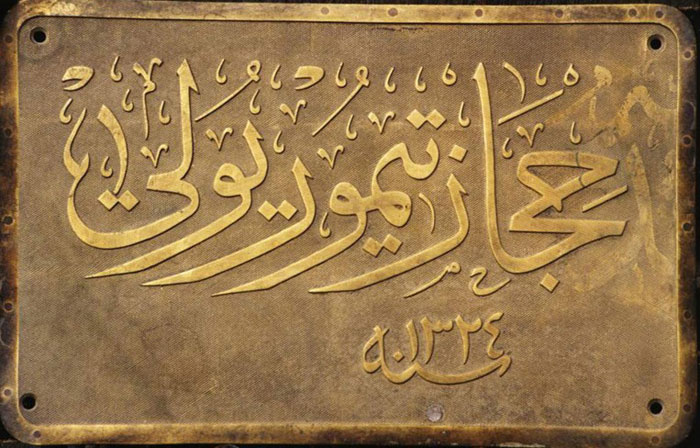 حجاز تيمور يولى
سنه ١٣٢٤